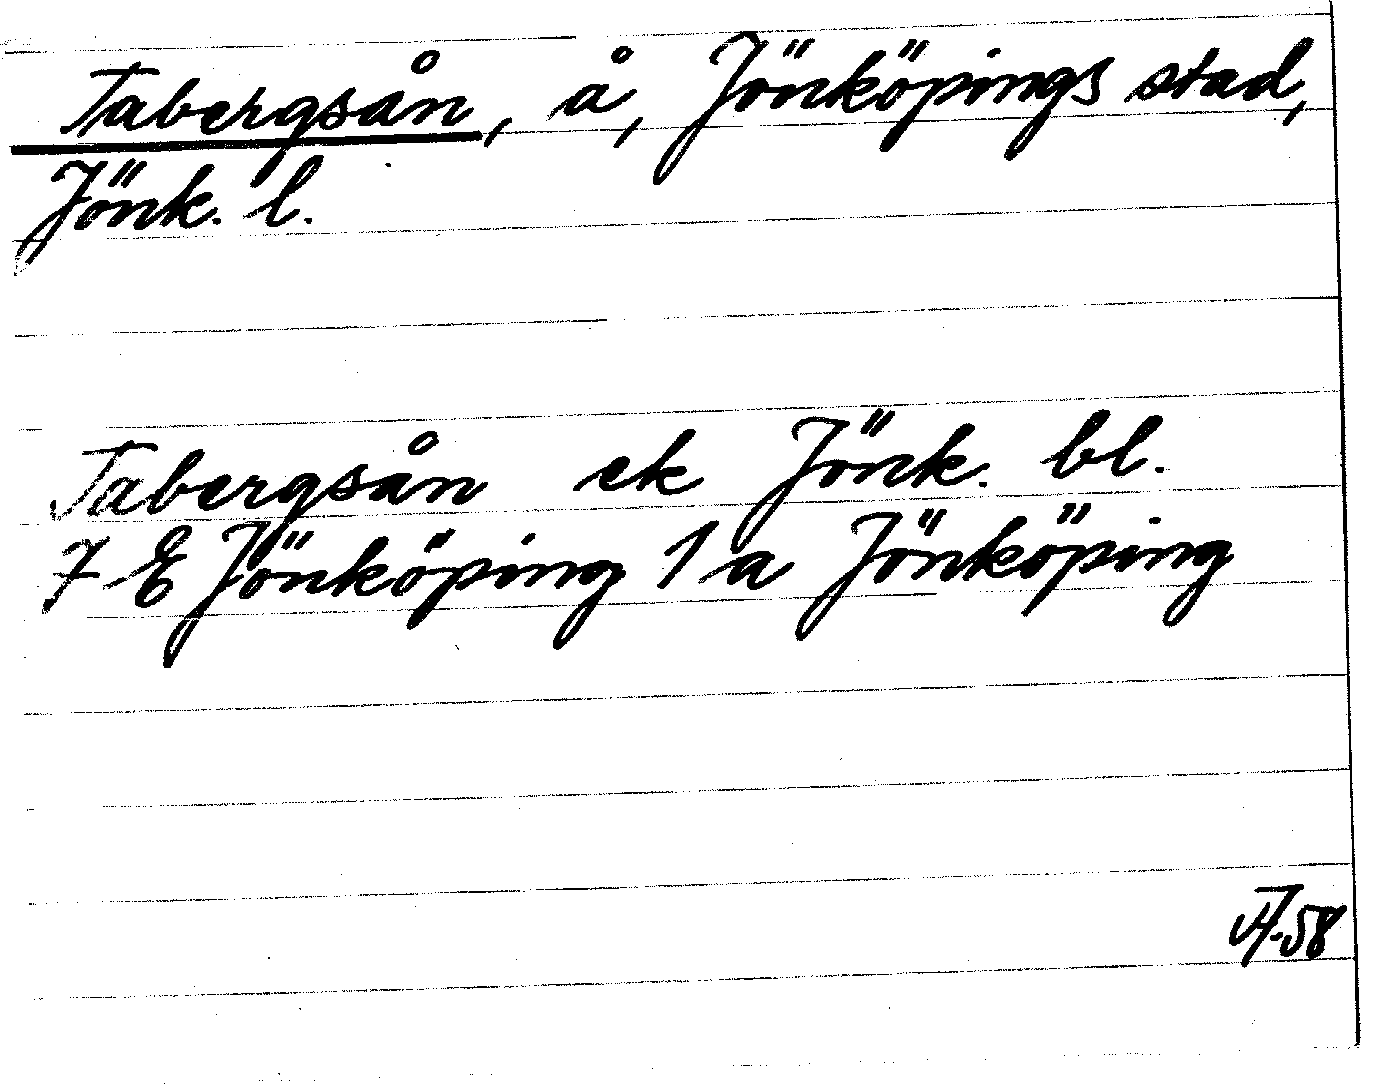 Tabergsån, å, Jönköpings stad,
Jönk. l.
Tabergsån ek Jönk. bl.
7 E Jönköping 1 a Jönköping